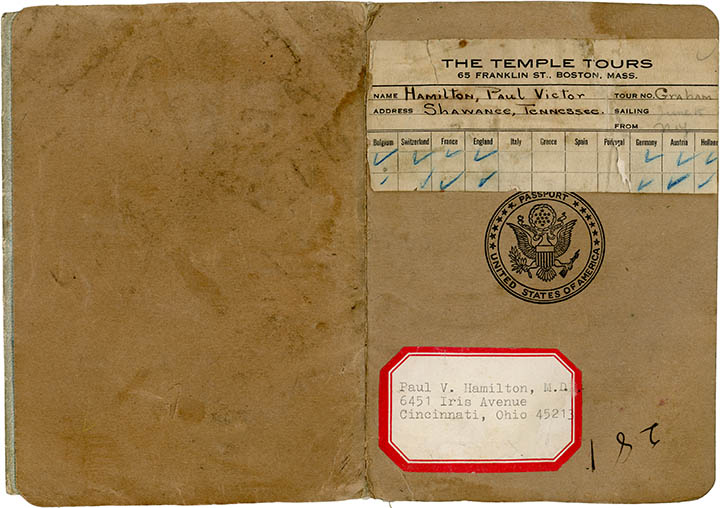 THE TEMPLE TOURS
65 FRANKLIN ST., BOSTON, MASS.
NAME Hamilton, Paul Victor TOUR NO. Graham
ADDRESS Shawanee, Tennessee. SAILING
FROM
Belgium Switzerland France England Italy Greece Spain Portugal Germany Austria Holland
PASSPORT
UNITED STATES OF AMERICA
Paul V. Hamilton, M.D.
6451 Iris Avenue
Cincinnati, Ohio 45213